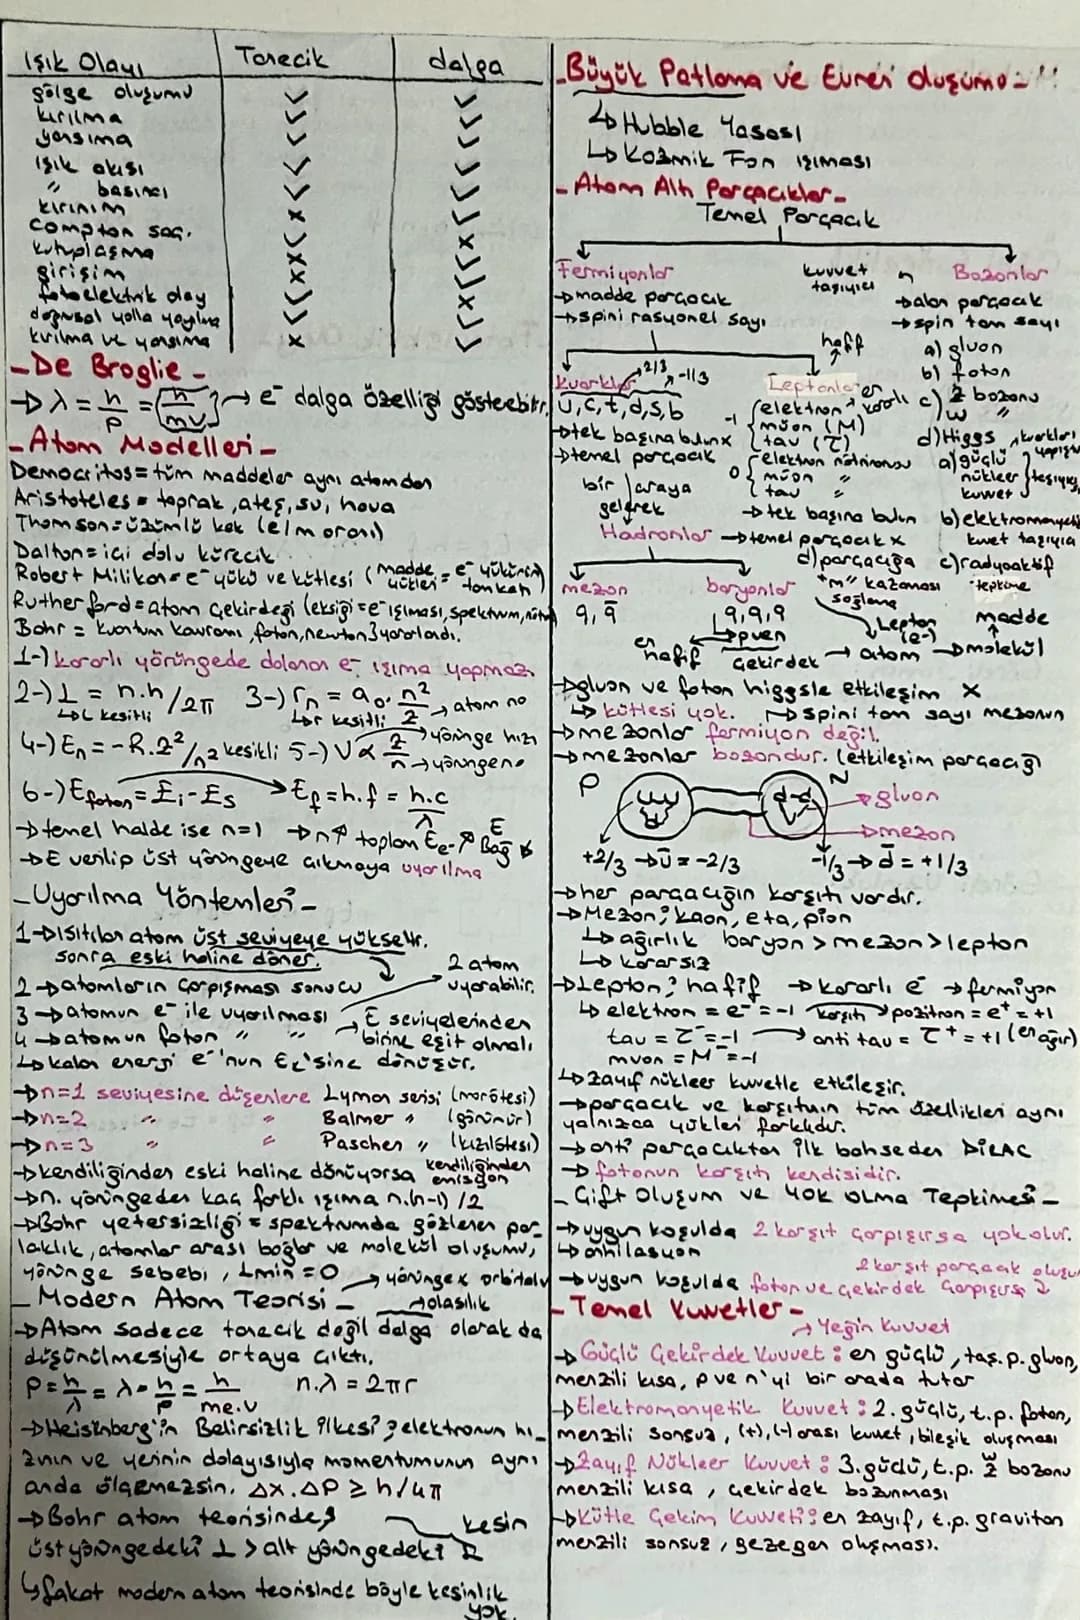 Işık Olayı Tanecik dalga
gölge oluşumu ✓ ✓
kırılma ✓ ✓
yansıma ✓ ✓
Işık akısı ✓ ✓
" basıncı ✓ ✓
kırınım x ✓
Compton saç. ✓ x
kutuplaşma x ✓
girişim x ✓
fotoelektrik olay ✓ x
doğrusal yolla yayılma ✓ ✓
kırılma ve yansıma x ✓
- De Broglie -
→ λ = h/p = h/mv → e⁻ dalga özelliği gösterebilir.
- Atom Modelleri -
Democritos = tüm maddeler aynı atomdan
Aristoteles = toprak, ateş, su, hava
Thomson = üzümlü kek (e/m oranı)
Dalton = içi dolu kürecik
Robert Milikan = e⁻ yükü ve kütlesi (madde yükleri = e⁻ yükünün tam katı)
Rutherford = atom çekirdeği (eksiği = e⁻ ışıması, spektrum, nötron
Bohr = kuantum kavramı, foton, newton } yararlandı.
1-) kararlı yörüngede dolanan e⁻ ışıma yapmaz
2-) L = n.h/2π 3-) rn = a₀. n²/Z → atom no
↳ L kesikli ↳ r kesikli
4-) En = -R.Z²/n² kesikli 5-) V α Z/n → yörünge hızı → yörünge no
6-) Efoton = Ei - Es → Ef = h.f = h.c/λ
→ temel halde ise n=1 → n↑ toplam Ee⁻ ↑ E Bağ ↓
→ E verilip üst yörüngeye çıkmaya uyarılma
- Uyarılma Yöntemleri -
1 → Isıtılan atom üst seviyeye yükselir.
sonra eski haline döner.
2 → atomların çarpışması sonucu → 2 atom uyarabilir.
3 → atomun e⁻ ile uyarılması
4 → atomun foton " → E seviyelerinden birine eşit olmalı
↳ kalan enerji e⁻'nun Ek'sine dönüşür.
→ n=1 seviyesine düşenlere Lyman serisi (morötesi)
→ n=2 " " Balmer " (görünür)
→ n=3 " " Paschen " (kızılötesi)
→ kendiliğinden eski haline dönüyorsa kendiliğinden emisyon
→ n. yörüngeden kaç farklı ışıma n.(n-1)/2
→ Bohr yetersizliği = spektrumda gözlenen par-
laklık, atomlar arası bağlar ve molekül oluşumu,
yörünge sebebi, Lmin = 0 → yörünge x orbital ✓
- Modern Atom Teorisi - → olasılık
→ Atom sadece tanecik değil dalga olarak da
düşünülmesiyle ortaya çıktı.
P = h/λ = λ = h/p = h/me.v n.λ = 2πr
→ Heisenberg'in Belirsizlik ilkesi ; elektronun hı-
zının ve yerinin dolayısıyla momentumunun aynı
anda ölçemezsin. Δx.ΔP ≥ h/4π
→ Bohr atom teorisinde ; kesin
üst yörüngedeki L > alt yörüngedeki L
↳ fakat modern atom teorisinde böyle kesinlik
yok.
- Büyük Patlama ve Evren oluşumu -
↳ Hubble Yasası
↳ Kozmik Fon Işıması
- Atom Altı Parçacıklar -
Temel Parçacık
Fermiyonlar kuvvet taşıyıcı Bozonlar
→ madde parçacık → alan parçacık
→ spini rasyonel sayı → spin tam sayı
Kuarklar +2/3 -1/3
u, c, t, d, s, b
→ tek başına bulunx
→ temel parçacık
bir araya gelerek
Hadronlar
hafif
Leptonlar
-1 { elektron → en kararlı
müon (M)
tau (τ)
0 { elektron nötrinosu
müon "
tau "
→ tek başına bulun
→ temel parçacık x
a) gluon
b) foton
c) Z bozonu
W "
d) Higgs
a) güçlü nükleer kuvvet } kuarkları yapıştı taşıyıcı
b) elektromanyetik
kuvvet taşıyıcı
c) radyoaktif tepkime
d) parçacığa
"m" kazanması
sağlama
mezon baryonlar
q, q̄ q, q, q
→ p ve n
en hafif
Lepton (e⁻)
çekirdek → atom → molekül
madde
→ gluon ve foton higgsle etkileşim x
↳ kütlesi yok. → spini tam sayı mezonun
→ mezonlar fermiyon değil.
→ mezonlar bozondur. (etkileşim parçacığı)
P N
→ gluon
→ mezon
+2/3 → ū = -2/3 -1/3 → d̄ = +1/3
→ her parçacığın karşıtı vardır.
→ Mezon ; kaon, eta, pion
↳ ağırlık baryon > mezon > lepton
↳ kararsız
→ Lepton ; hafif → kararlı e⁻ → fermiyon
↳ elektron = e⁻ = -1 karşıtı → pozitron = e⁺ = +1
tau = τ⁻ = -1 → anti tau = τ⁺ = +1 (en ağır)
muon = M⁻ = -1
↳ zayıf nükleer kuvvetle etkileşir.
→ parçacık ve karşıtının tüm özellikleri aynı
yalnızca yükleri farklıdır.
→ anti parçacıktan ilk bahseden DİRAC
→ fotonun karşıtı kendisidir.
- Çift Oluşum ve Yok Olma Tepkimesi -
→ uygun koşulda 2 karşıt çarpışırsa yok olur.
↳ anhilasyon
2 karşıt parçacık oluşur
→ uygun koşulda foton ve çekirdek çarpışırsa
- Temel Kuvvetler -
→ Yeğin Kuvvet
→ Güçlü Çekirdek Kuvvet : en güçlü, taş. p. gluon,
menzili kısa, p ve n'yi bir arada tutar
→ Elektromanyetik Kuvvet : 2. güçlü, t.p. foton,
menzili sonsuz, (+), (-) arası kuvvet, bileşik oluşması
→ Zayıf Nükleer Kuvvet : 3. güçlü, t.p. W Z bozonu
menzili kısa, çekirdek bozunması
→ Kütle Çekim Kuvveti : en zayıf, t.p. graviton
menzili sonsuz, gezegen oluşması.